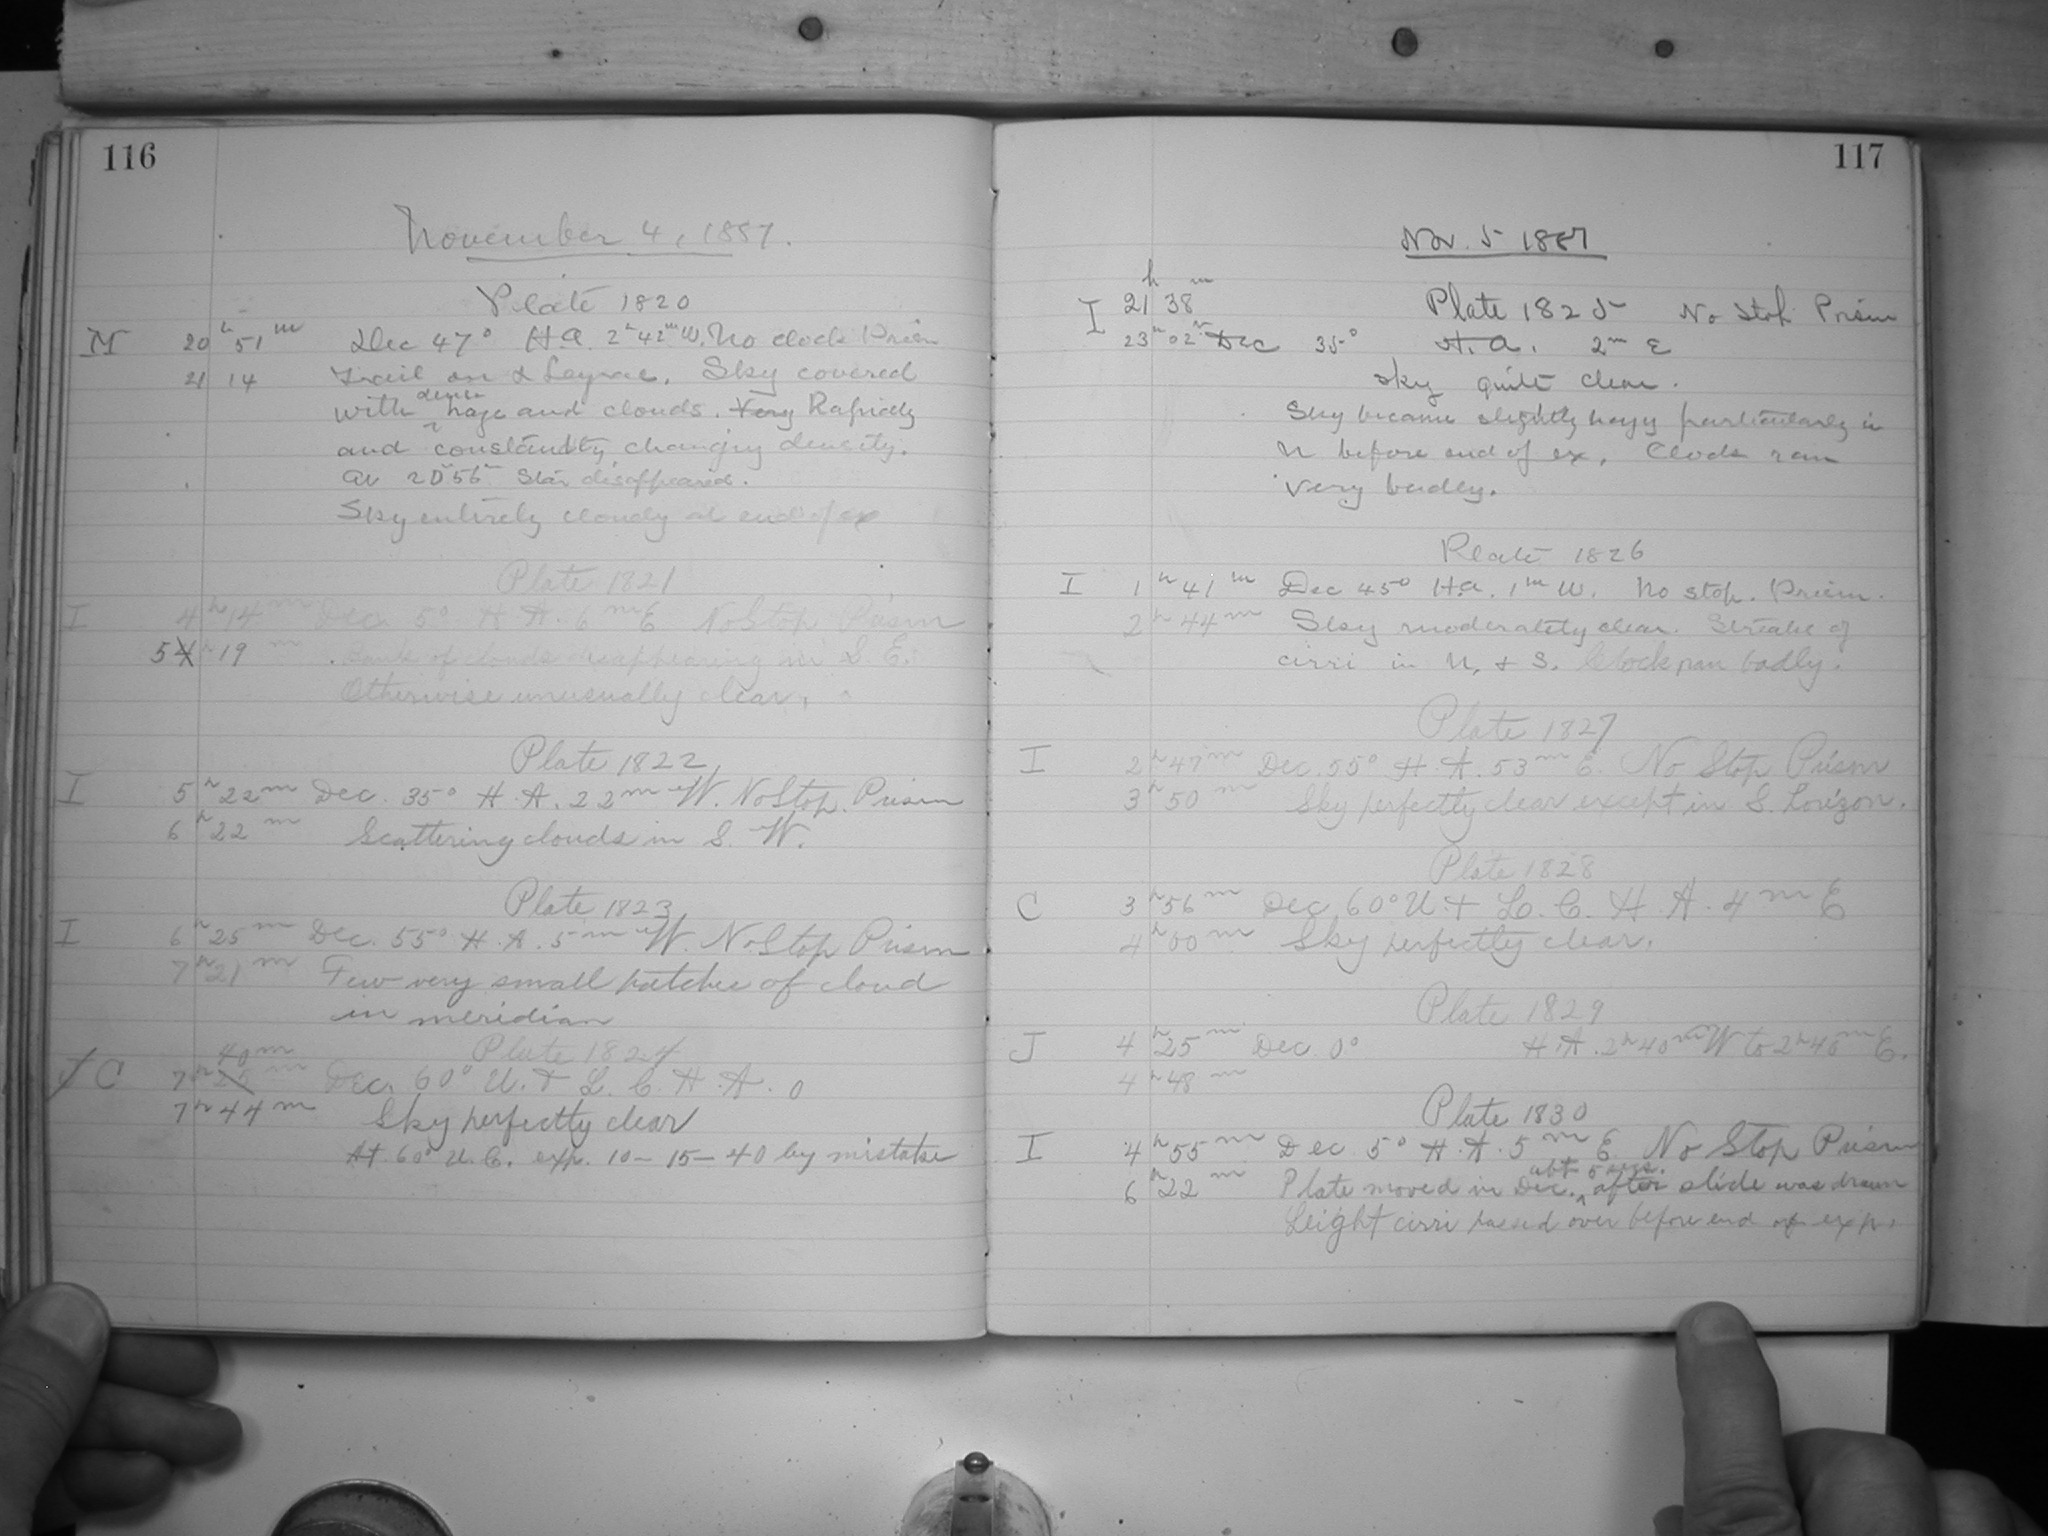 116
November 4, 1887.
Plate 1820
M 20h 51m Dec 47° H.A. 2h 42m W. No clock Prism
21 14 Trail on α Lyrae. Sky covered
with dense haze and clouds. Very Rapidly
and constantly changing density.
At 20h 56m Star disappeared.
Sky entirely cloudy at end of ex
Plate 1821
I 4h 14m Dec. 5° H.A. 6m E No Stop Prism
5 4h 19m Bank of clouds disappearing in S. E.
Otherwise unusually clear.
Plate 1822
I 5h 22m Dec. 35° H.A. 22m W. No Stop. Prism
6h 22m Scattering clouds in S. W.
Plate 1823
I 6h 25m Dec. 55° H.A. 5m W. No Stop Prism
7h 21m Few very small patches of cloud
in meridian
40m Plate 1824
J C 7h 25m Dec. 60° U. + L. C. H.A. 0
7h 44m Sky perfectly clear
At 60° U.C. exp. 10-15-40 by mistake
117
Nov. 5 1887
h m
I 21 38 Plate 1825 No Stop. Prism
23h 02m Dec 35° H.A. 2m E
Sky quite clear.
Sky became slightly hazy particularly in
N before end of ex. Clock ran
very badly.
Plate 1826
I 1h 41m Dec 45° H.A. 1m W. No stop. Prism.
2h 44m Sky moderately clear. Streaks of
cirri in N. + S. Clock ran badly.
Plate 1827
I 2h 47m Dec. 55° H.A. 53m E. No Stop Prism
3h 50m Sky perfectly clear except in S. horizon.
Plate 1828
C 3h 56m Dec. 60° U. + L. C. H.A. 4m E
4h 00m Sky perfectly clear.
Plate 1829
J 4h 25m Dec. 0° H.A. 2h 40m W to 2h 46m E.
4h 48m
Plate 1830
I 4h 55m Dec 5° H.A. 5m E No Stop Prism
abt 5
6h 22m Plate moved in Dec. after slide was drawn
Leight cirri passed over before end of exp.